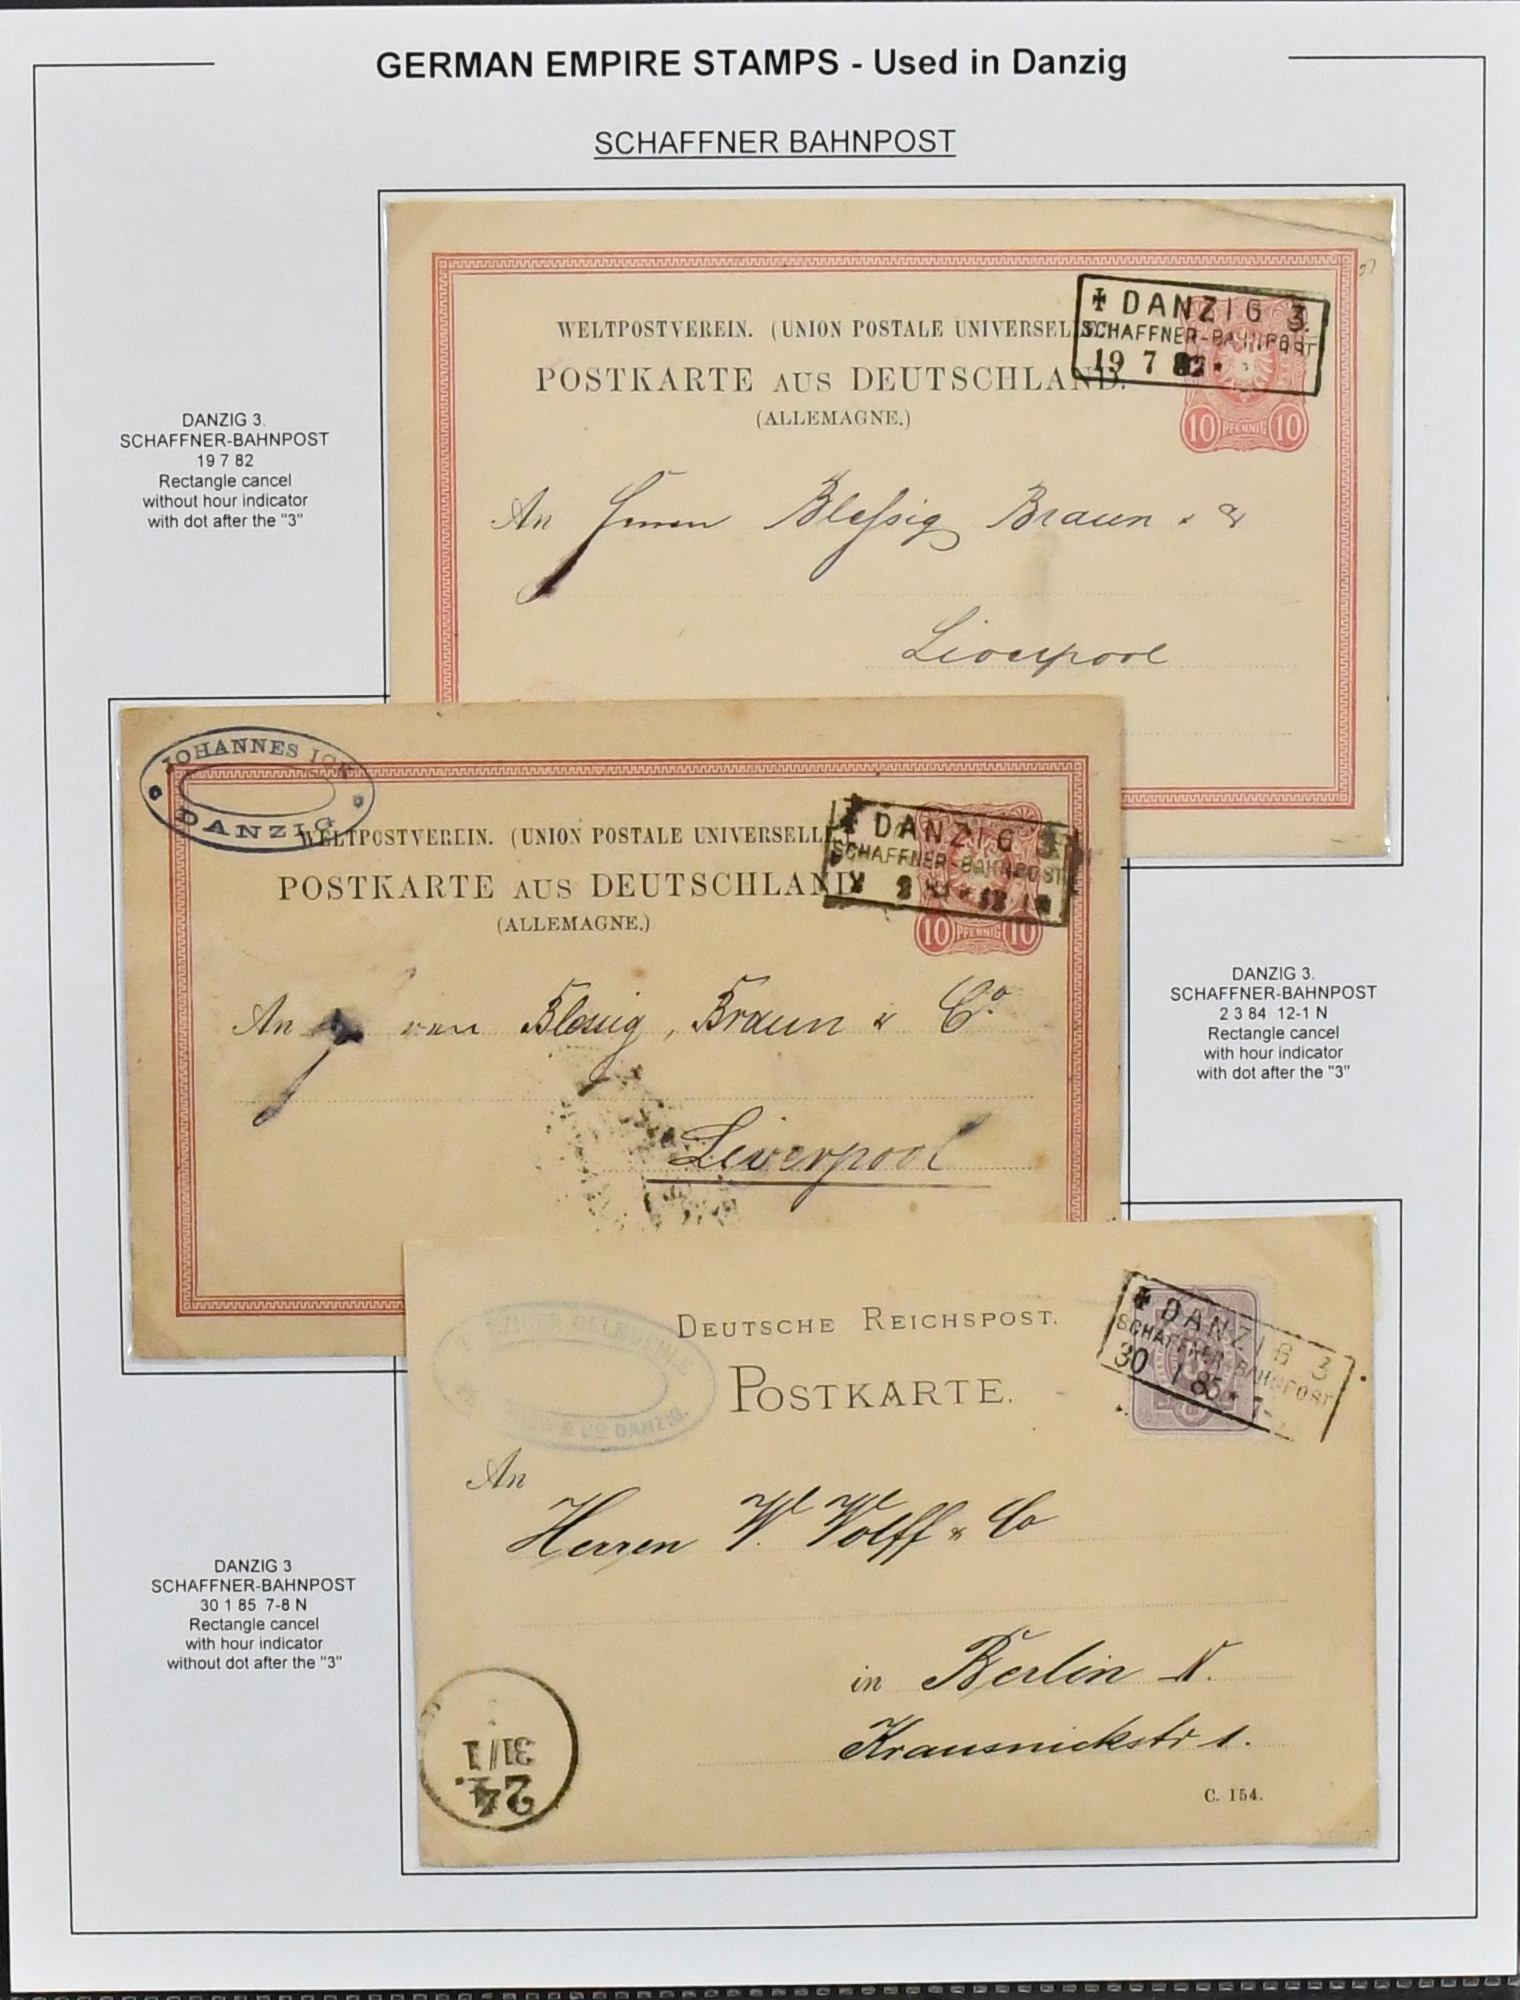 GERMAN EMPIRE STAMPS - Used in Danzig
SCHAFFNER BAHNPOST
DANZIG 3.
SCHAFFNER-BAHNPOST
19 7 82
Rectangle cancel
without hour indicator
with dot after the "3"
WELTPOSTVEREIN. (UNION POSTALE UNIVERSELLE.)
POSTKARTE AUS DEUTSCHLAND.
(ALLEMAGNE.)
DANZIG 3.
SCHAFFNER-BAHNPOST
19 7 82 *
10 PFENNIG 10
An Herren Blessig Braun &
Liverpool
JOHANNES ICK
DANZIG
WELTPOSTVEREIN. (UNION POSTALE UNIVERSELLE.)
POSTKARTE AUS DEUTSCHLAND
(ALLEMAGNE.)
DANZIG 3.
SCHAFFNER-BAHNPOST
10 PFENNIG 10
An Blessig, Braun & Co.
Liverpool
DANZIG 3.
SCHAFFNER-BAHNPOST
2 3 84 12-1 N
Rectangle cancel
with hour indicator
with dot after the "3"
DEUTSCHE REICHSPOST.
POSTKARTE.
& Co DANZIG.
DANZIG 3
SCHAFFNER-BAHNPOST
30 1 85 * 7-
An
Herren W. Wolff & Co
in Berlin N.
Krausnickstr 1.
C. 154.
31/1
24.
DANZIG 3
SCHAFFNER-BAHNPOST
30 1 85 7-8 N
Rectangle cancel
with hour indicator
without dot after the "3"